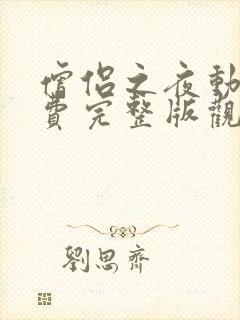 僧侶之夜動
費完整版觀
劉思齊